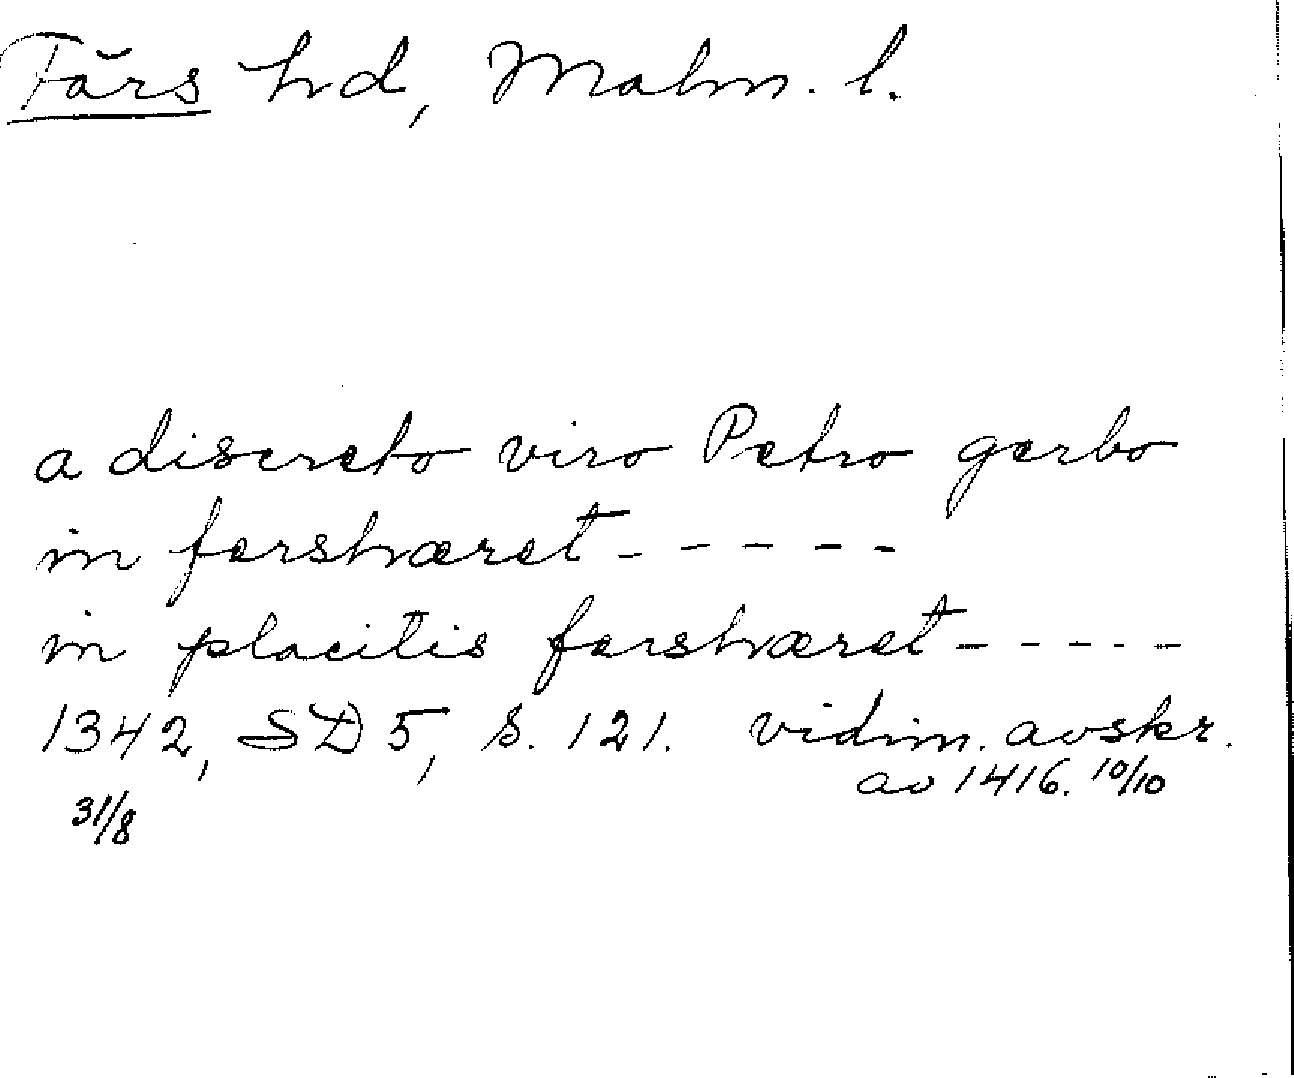 Färs hd, Malm. l.
a discreto viro Petro gerbo
in fershæret - - - - -
in placitis fershæret - - - - -
1342, SD 5, s. 121. vidim. avskr.
av 1416. 10/10
31/8